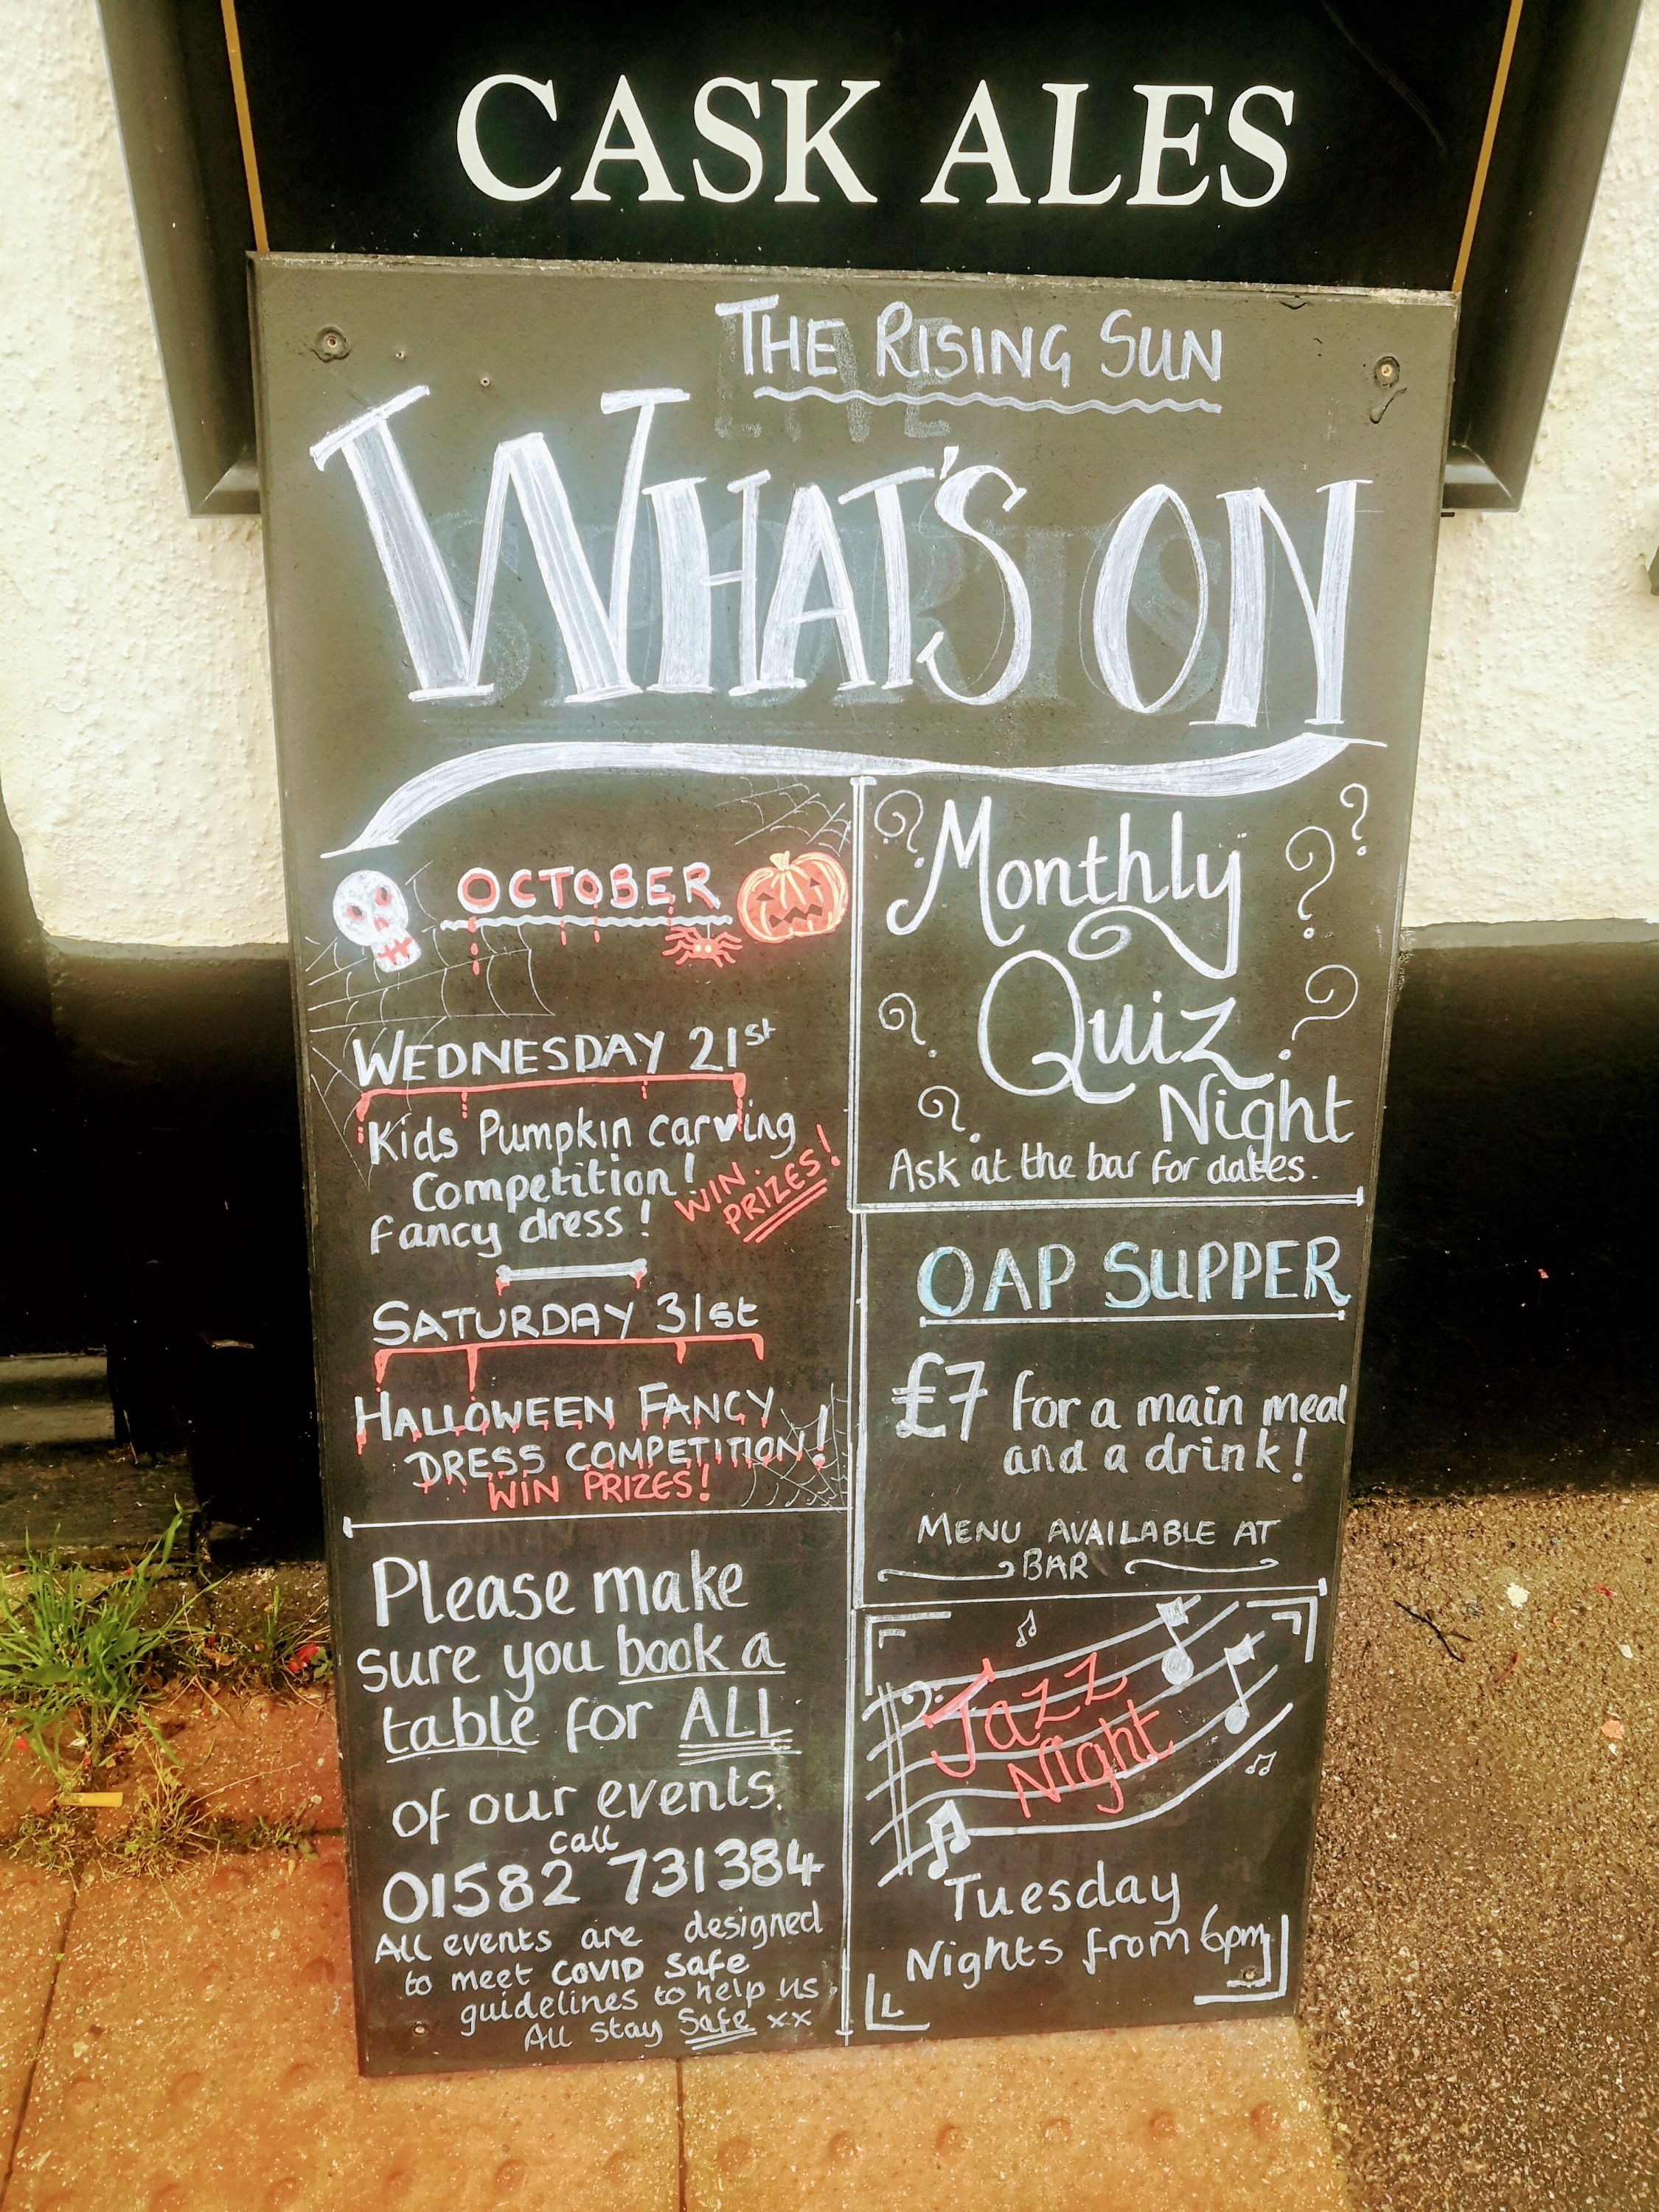 CASK ALES
THE RISING SUN
WHAT'S ON
OCTOBER
WEDNESDAY 21st
Kids Pumpkin carving
Competition!
fancy dress!
WIN
PRIZES!
SATURDAY 31st
HALLOWEEN FANCY
DRESS COMPETITION!
WIN PRIZES!
Please make
sure you book a
table for ALL
of our events.
call
01582 731384
All events are designed
to meet COVID safe
guidelines to help us
All stay Safe xx
Monthly
Quiz
Night
Ask at the bar for dates.
OAP SUPPER
£7 for a main meal
and a drink!
MENU AVAILABLE AT
BAR
Jazz
Night
Tuesday
Nights from 6pm